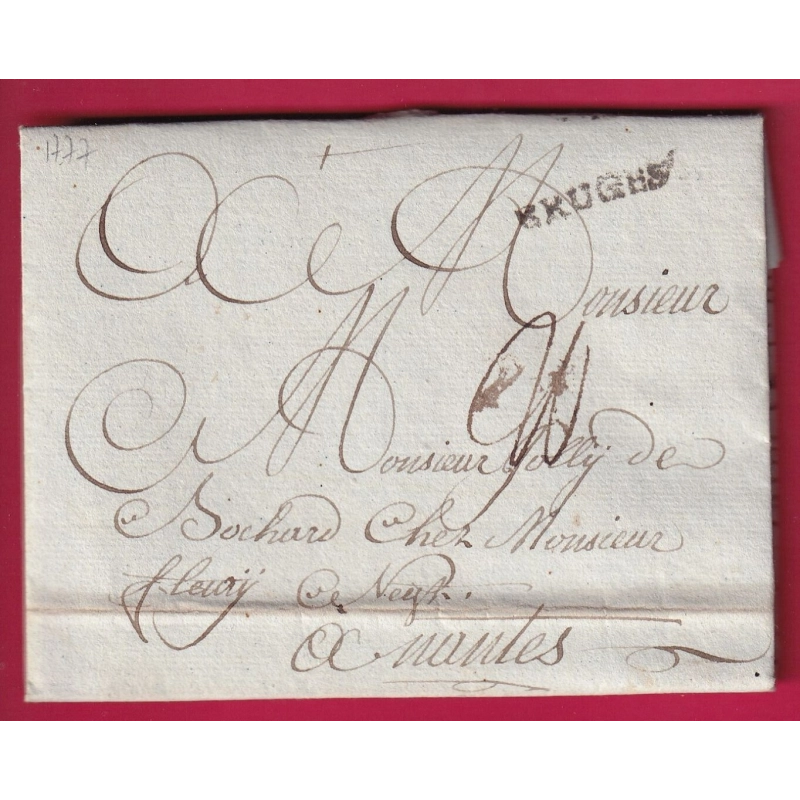 1777
BRUGES
A Monsieur
Monsieur Jolly de
Bochard Chez Monsieur
fleurÿ Negt.
A nantes